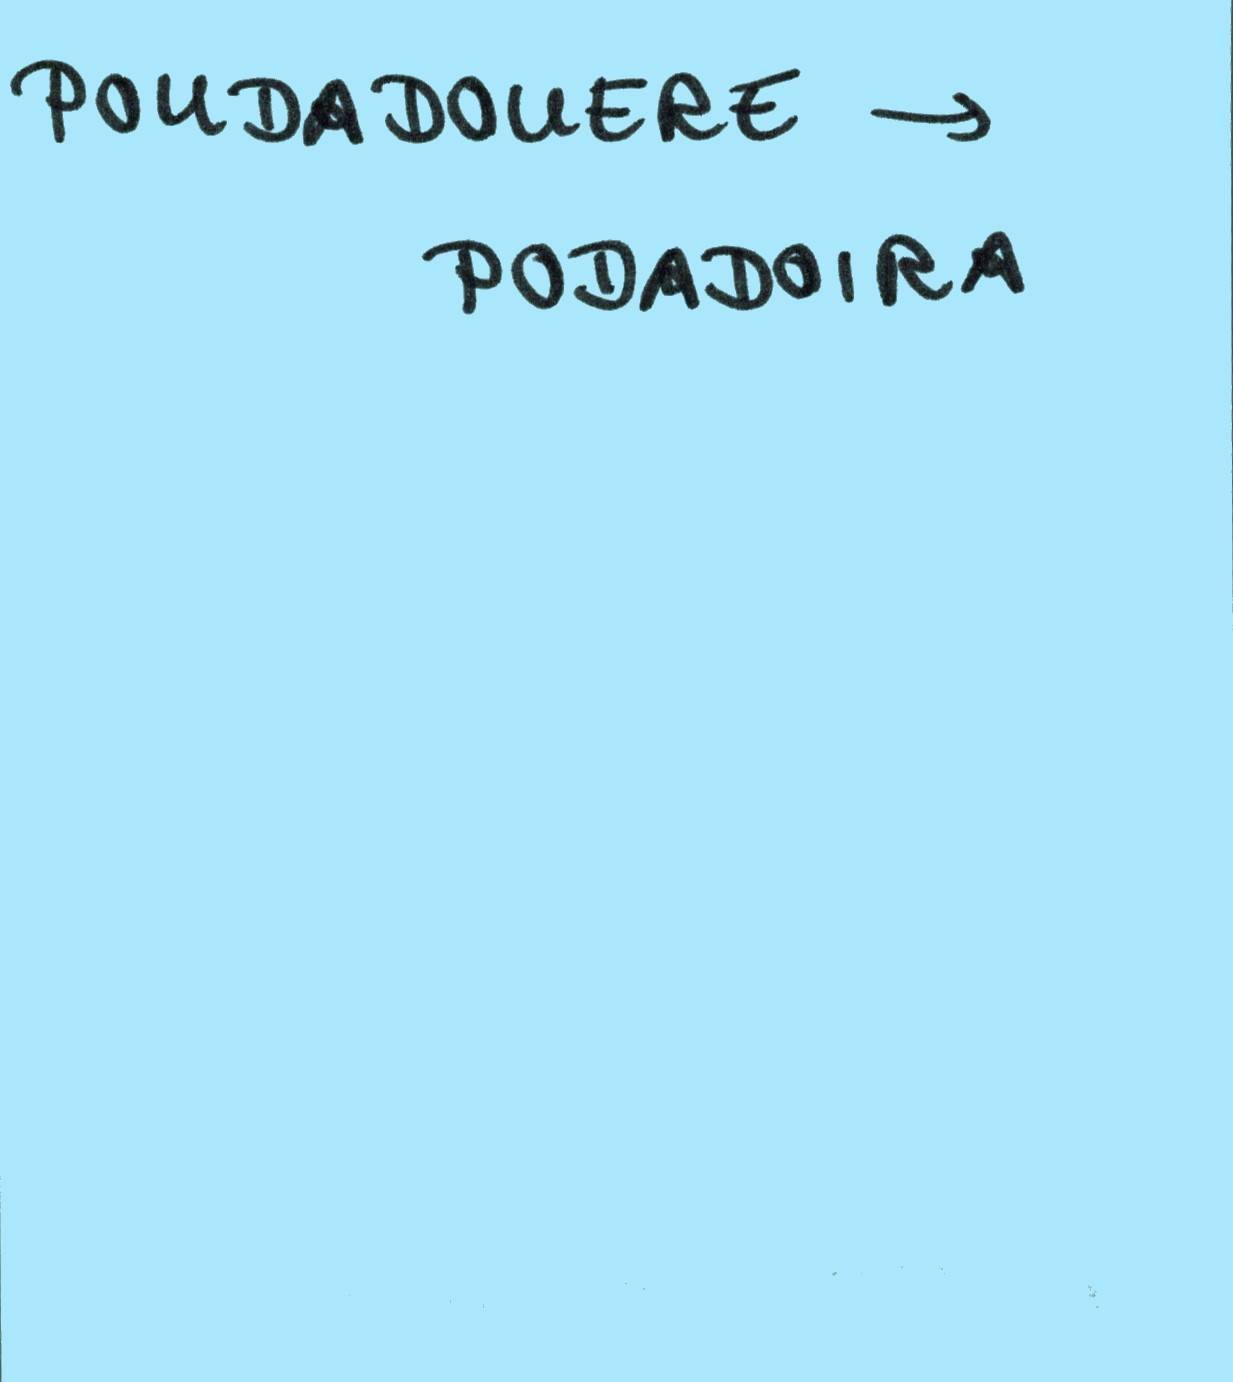 POUDADOUERE →
PODADOIRA